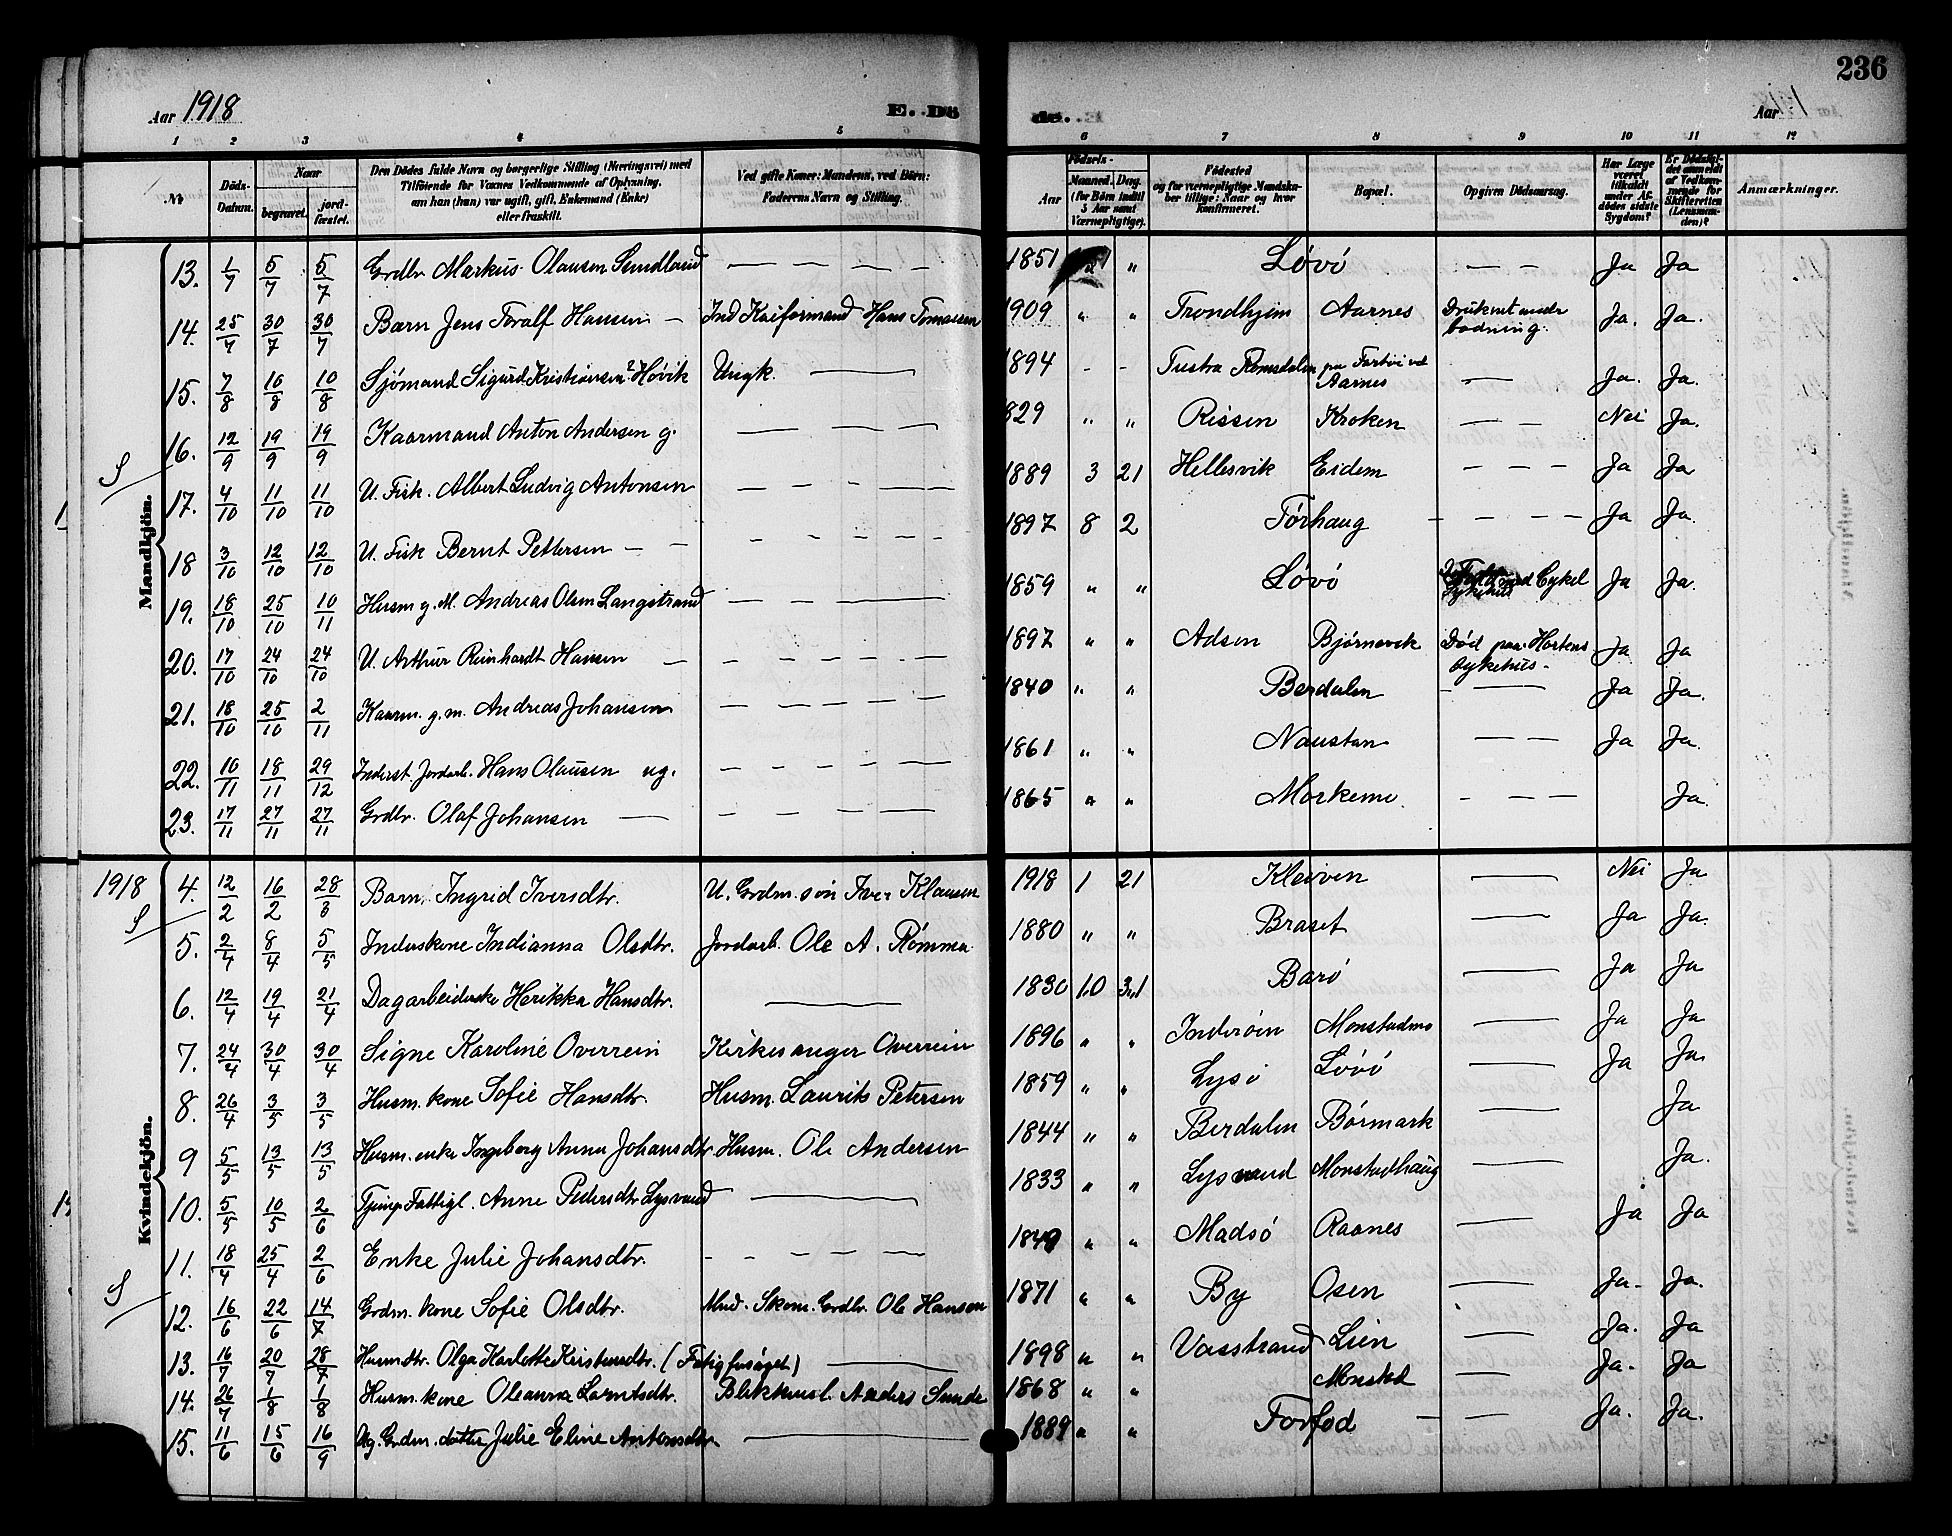 236
Aar 1918
E. Dö
de.
Aar
1 2 3 4 5 6 7 8 9 10 11 12
Nr.
Döds-Datum.
Naar
begravet.
jord-fæstet.
Den Dödes fulde Navn og borgerlige Stilling (Næringsvei) med
Tilföiende for Voxnes Vedkommende af Oplysning,
om han (hun) var ugift, gift, Enkemand (Enke)
eller fraskilt.
Ved gifte Koner: Mandens, ved Börn:
Faderens Navn og Stilling.
Födsels-
Aar
Maaned. Dag.
(for Börn indtil
5 Aar samt
Værnepligtige).
Födested
og for værnepligtige Mandska-
ber tillige: Naar og hvor
konfirmeret.
Bopæl.
Opgiven Dödsaarsag.
Har Læge
været
tilkaldt
under Af-
dødes sidste
Sygdom?
Er Dödsfal-
det anmeldt
af Vedkom-
mende for
Skifteretten
(Lensman-
den)?
Anmærkninger.
Mandkjön.
13. 1/7 5/7 5/7 Grdbr Markus Olausen Sundland — — — — 1851 " Lóvó — — Ja Ja
14. 25/7 30/7 30/7 Barn Jens Toralf Hansen — Ind Kaiformand Hans Tomassen 1909 " " Trondhjem Aarnes Druknet under badning. Ja. Ja.
15. 7/8 10/8 10/8 Sjómand Sigurd Kristiansen Hóvik Ungk. — 1894 - - Tustra Romsdalen paa Fartöi ved Aarnes — Ja. Ja.
16. 12/9 19/9 19/9 Kaarmand Anton Andersen g. — — — 829 " " Rissen Kroken — — Nei Ja.
S 17. 4/10 11/10 11/10 U. Fisk. Albert Ludvig Antonsen — — — — 1889 3 21 Hellesvik Eidem — — — Ja Ja
18 3/10 12/10 12/10 U. Fisk Bernt Pettersen — — — — — 1897 8 2 Tórhaug — — — — Ja Ja.
19. 18/10 25/10 10/11 Husm g. M. Andreas Olsen Langstrand — — — 1859 " " Lóvó Cykel Ja Ja.
20. 17/10 24/10 24/10 U. Arthur Reinhardt Hansen — — — — — 1897 " " Adsen Bjórnevik Död paa Hortens sykehus. Ja Ja
21. 18/10 25/10 2/11 Kaarm. g. m. Andreas Johansen — — — — 1840 " " Berdalen — — Ja Ja.
22. 10/11 18/11 29/12 Inderst. Jordarb. Hans Olausen ug. — — — — 1861 " " Naustan — — Ja Ja.
23. 17/11 27/11 27/11 Grdbr. Olaf Johansen — — — — — 1865 " " Morkemo. — — — Ja.
Kvindekjön.
1918 4. 12/2 16/2 28/3 Barn. Ingrid Iversdtr. U. Grdm. són Iver Klausen 1918 1 21 Kleiven — Nei Ja
S 5. 2/4 8/4 5/5 Inderskone Indianna Olsdtr. Jordarb. Ole A. Rómma 1880 " " Braset — Ja Ja.
6. 12/4 19/4 21/4 Dagarbeiderske Herikka Hansdtr. — 1830 10 31 Baró — Ja Ja
7. 24/4 30/4 30/4 Signe Karoline Overrein Kirkesanger Overrein 1896 " " Inderóen Monstadmo — Ja Ja
8. 26/4 3/5 3/5 Husm. kone Sofie Hansdtr. Husm. Laurits Petersen 1859 " " Lysó Lóvó — Ja Ja
9 5/5 13/5 13/5 Husm. enke Ingeborg Anna Johansdtr Husm. Ole Andersen 1844 " " Berdalen Bórmark — Ja
10. 5/5 10/5 2/6 Fattigl. Anne Pedersdtr Lysvand — 1833 " " Lysvand Monstadhaug — Ja.
11. 18/4 25/4 2/6 Enke Julie Johansdtr. — — — — 1849 " " Madsó Raanes — Ja Ja
S 12. 16/6 22/6 14/7 Grdm. kone Sofie Olsdtr. Mnd. Skom. Grdbr. Ole Hansen 1871 " " By Osen — Ja. Ja.
13. 16/7 20/7 28/7 Husmdtr. Olga Karlotte Kristensdtr. — 1898 " " Vasstrand Lien — Ja. Ja
14. 26/7 1/8 1/8 Husm. kone Oleanna Larntsdtr. Blikkensl. Anders Sunde 1868 " " Monstad — Ja. Ja
15. 11/6 15/6 16/9 Ug. Grdm. datter Julie Eline Antonsdtr — 1889 " " Forfod — — Ja. Ja.